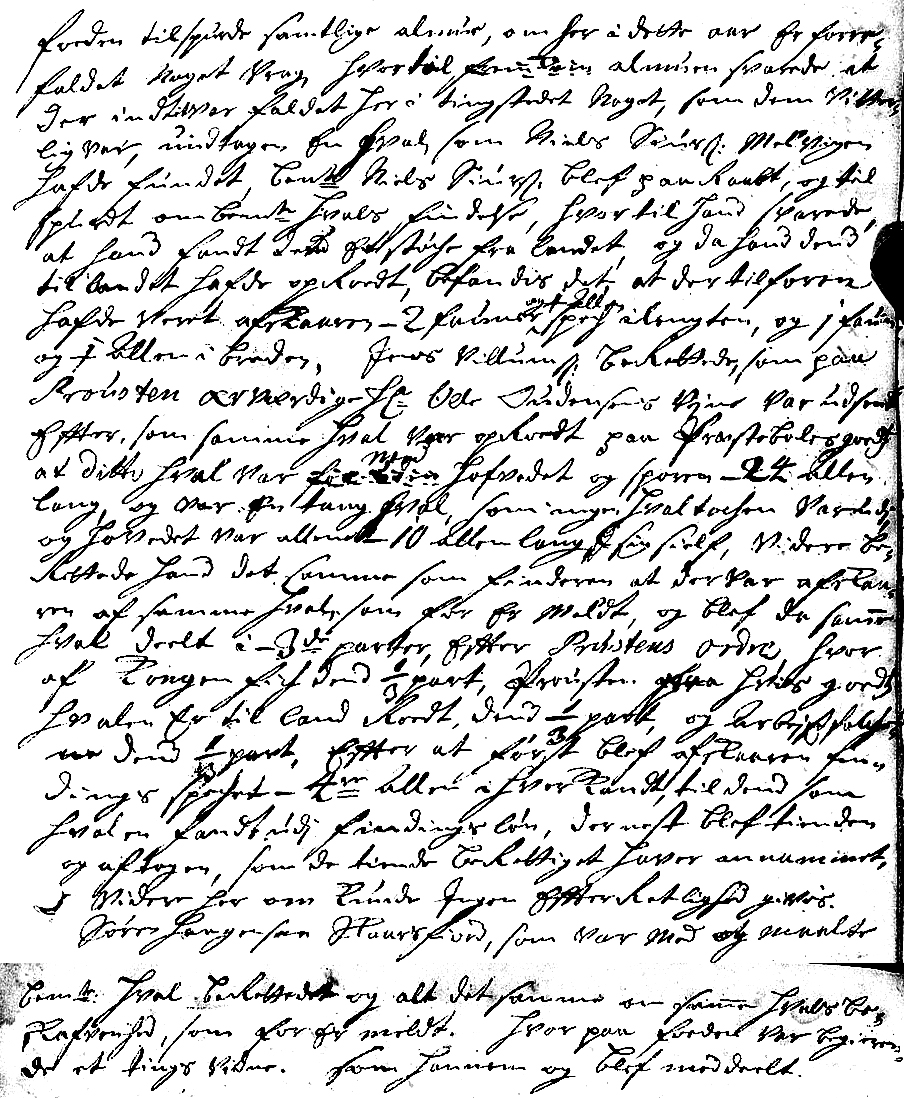 foeden tilspurde samtlige almue, om her i dette aar Er forre,
faldet Noget Vrag, hvortil almuen svarede at
der indtet var faldet her i tingstedet Noget, som dem Vitter,
lig var, undtagen En Hval, som Niels Siurs: Melvigen
hafde fundet, bemte Niels Siurs: blef paaRaabt, og til
spurdt om bemte Hvals findelse, hvortil hand svarede,
at hand fandt dend Et støche fra landet, og da hand dend
til landet hafde opRoedt, befandis det, at der tilforen
hafde veret afskaaren - 2 faufner spech i lengten, og 1 faun
og 1 allen i breden, Jens Villums: berettede, som paa
Prousten ærværdige Hr Ole Siudensens Vegne var udsendt
Effter, som samme hval var opRoedt paa Præstebolesgoeds
at ditto Hval var med hofvedet og sporen - 24 allen
lang, og var En tang Hval, som ingen hvaltochen var udj,
og hovedet var allene 10 allen lang i sig sielf, Videre be,
Rettede hand det samme som finderen at der var afskaa,
ren af samme hval, som før Er Meldt, og blef da samme
hval deelt i - 3de parter, Effter Proustens order, hvor
af Kongen fich dend 1/3 part, Prousten paa hvis goeds
hvalen Er til land Roedt, dend 1/3 part, og Arbejdsfolche,
ne dend 1/3 part, Effter at først blef afskaaren fin,
dings spechet - 4re allen i hver Kandt, til dend som
hvalen fandt udj findingsløn, dernest blef tienden
og aftagen, som de tiende berettiget haver annammet,
Videre her om kunde Ingen Effterretlighed givis.
Søren Haagensen Skaarsfiord, som var med og maalte
bemte: Hval berettedet og alt det samme om samme hvals be,
skafvenhed, som for Er meldt. Hvor paa foeden var begieren,
de et tings vidne. som hannem og blef meddeelt.